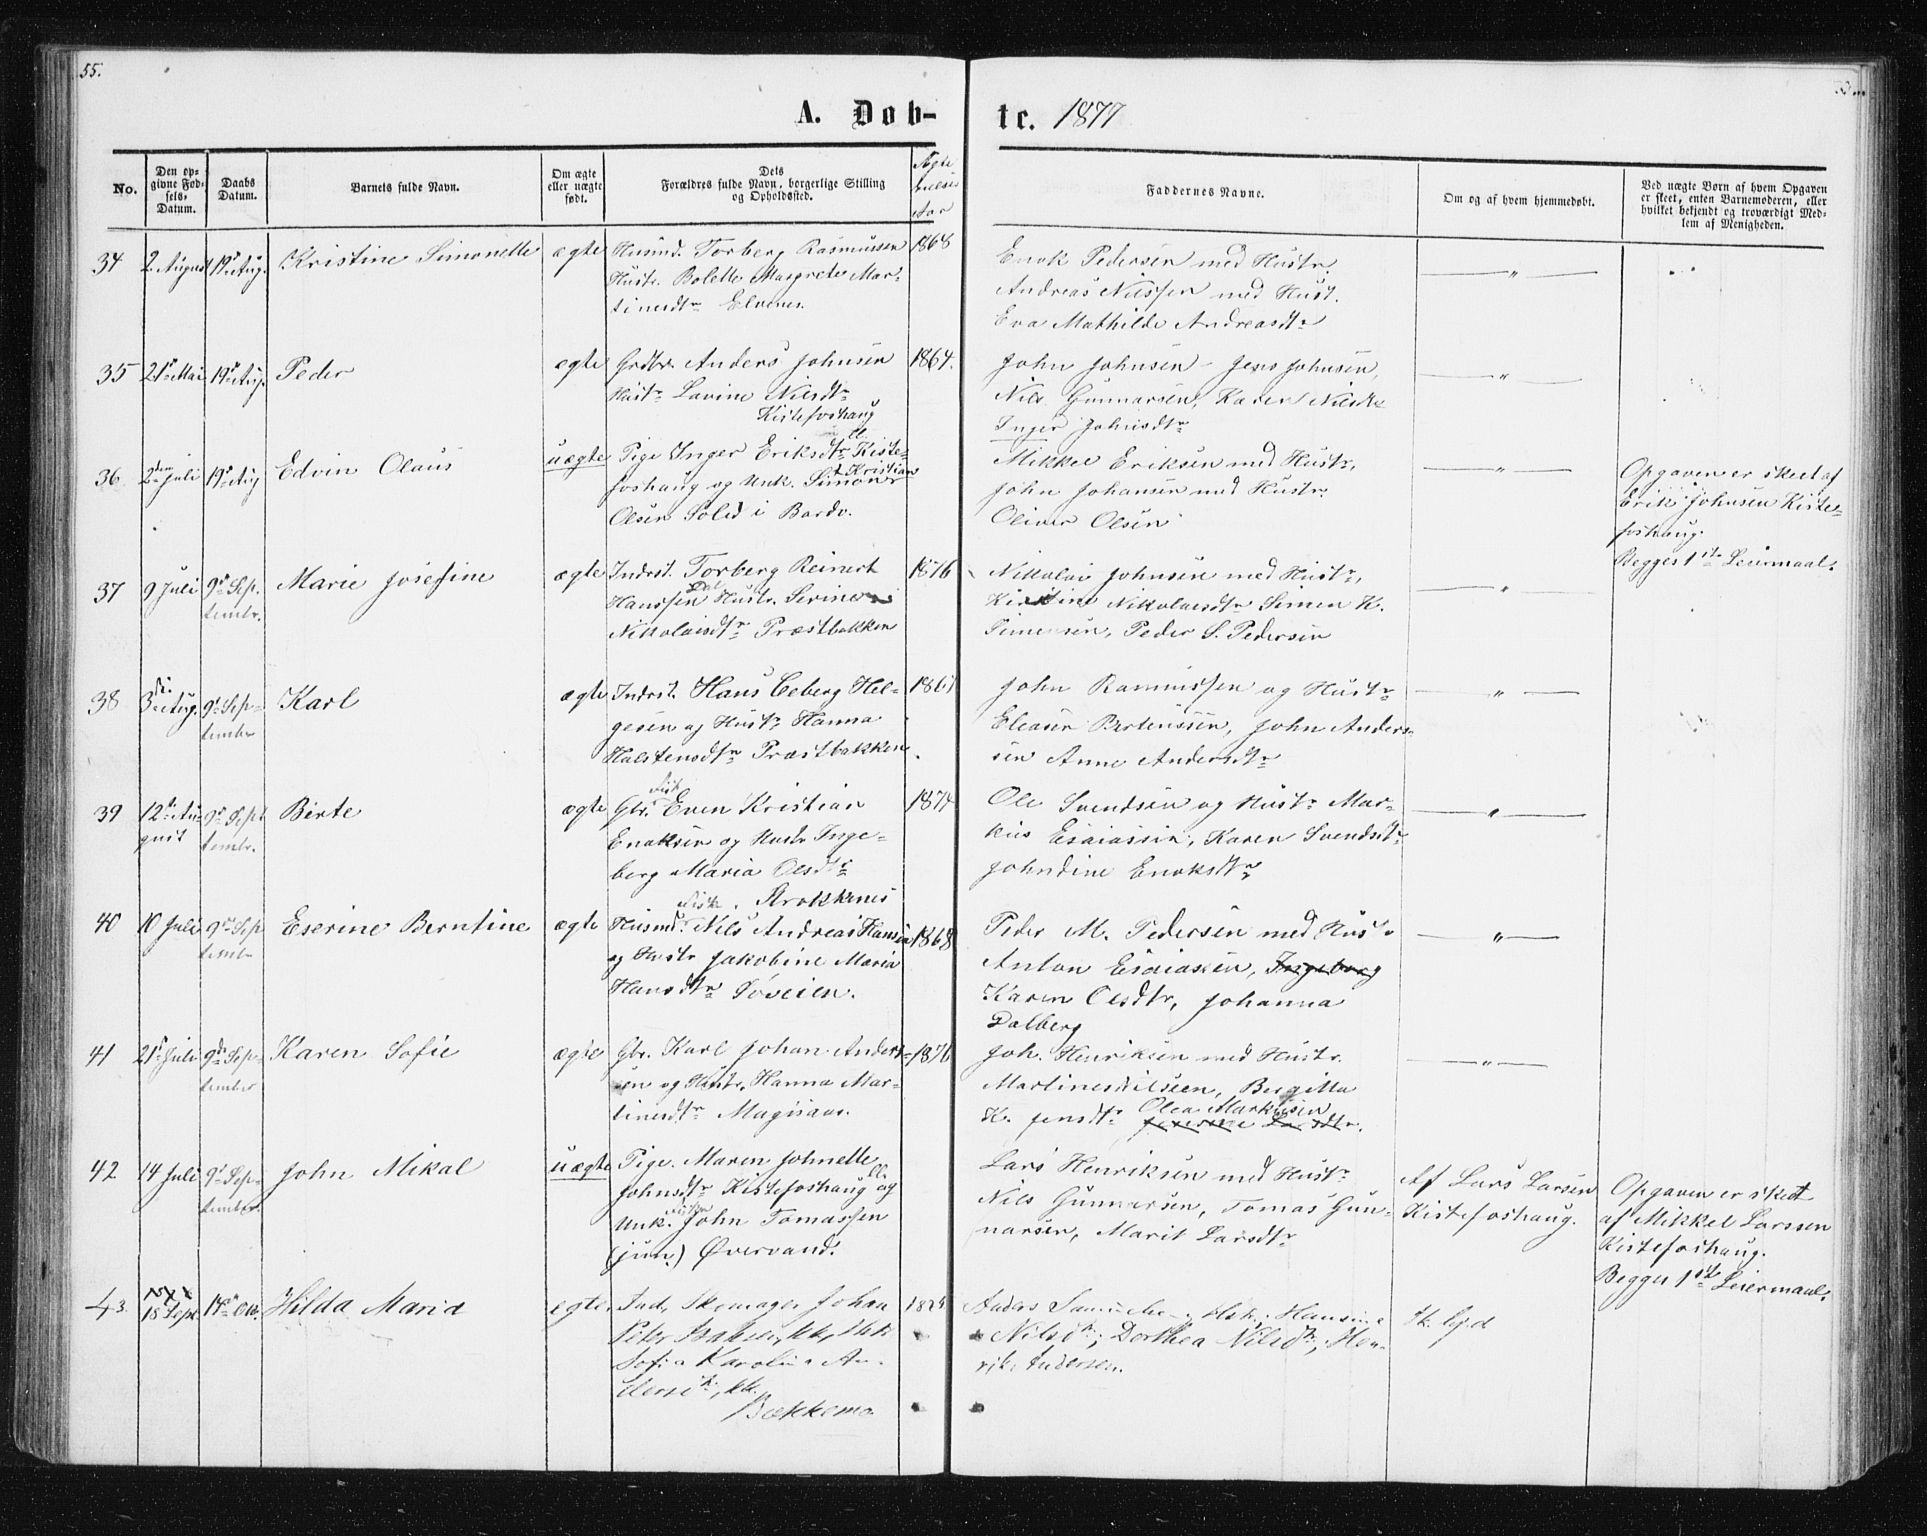 55.
A. Døb-
te. 1877
No.
Den op-
givne Fød-
sels-
Datum.
Daabs
Datum.
Barnets fulde Navn.
Om ægte
eller uægte
født.
Dets
Forældres fulde Navn, borgerlige Stilling
og Opholdssted.
Ægte
Aar
Faddernes Navne.
Om og af hvem hjemmedøbt.
Ved uægte Børn af hvem Opgaven
er skeet, enten Barnemoderen, eller
hvilket bekjendt og troværdigt Med-
lem af Menigheden.
34 2 August 19de Aug. Kristine Simonette ægte Husmd. Torberg Rasmussen 1868
Hustr. Bolette Margrete Mar-
tinusdtr Elvenes.
Enok Pedersen med Hustr.
Andreas Nilssen med Hust.
Eva Mathilde Andreasdtr
— " —
35 21de Mai 19de Aug. Peder ægte Grdbr. Anders Johnsen 1864.
Hustr Lavine Nilsdtr
Kistefoshaug
John Johnsen - Jens Johnsen,
Nils Gunnarsen, Karen Nilsdtr
Inger Johnsdtr
— " —
36 2den Juli 19de Aug Edvin Olaus uægte Pige Inger Eriksdtr Kiste-
foshaug og Unk. Simon Kristian
Olsen Soled i Bardo.
Mikkel Eriksen med Hustr,
John Johansen med Hustr.
Oliver Olsen
— " —
Opgaven er skeet af
Erik Johnsen Kiste-
foshaug.
Begges 1ste Leiermaal.
37 9 Juli 9de Sep-
tembr. Marie Josefine ægte Indrst. Torberg Reinert 1876
Hanssen Dal Hustr. Serine
Nikolaisdtr Præstbakken
Nikolai Johnsen med Hustr,
Kirstine Nikolaisdtr Simen K.
Simensen, Peder S. Pedersen
— " —
38 3die Aug. 9de Sep-
tembr Karl ægte Indrst. Hans Ceberg Hel-
gesen og Hustr Hanna
Halstensdtr Præstbakken
John Rasmussen og Hustr
Eleaser Bertenssen, John Anders-
sen Anne Andersdtr
— " —
39 12te Au-
gust 9de Sept
tembr. Berte ægte Gbr. Even Kristian 1874
Enoksen og Hustr Inge-
berg Maria Olsdtr
Strokkenes
Ole Svendsen og Hustr Mar-
kus Esaiassen, Karen Svendsdtr
Johndine Enoksdtr
— " —
40 10 Juli 9de Sep
tembr Eserine Berntine ægte Husmd. Nils Andreas Hansen 1868
og Hustr Jakobine Maria
Hansdtr Søveien.
Peder M. Pedersen med Hustr
Anton Esaiassen, Ingeborg
Karen Olsdtr, Johanna
Dalberg
— " —
41 21de Juli 9de Sep-
tember Karen Sofie ægte Gbr. Karl Johan Anders- 1876
sen og Hustr. Hanna Mar-
tinusdtr Mugsaas.
Joh. Henriksen med Hustr.
Martines Nilseen, Bergitta
K. Jensdtr Olea Markusen
— " —
42 14 Juli 9de Sep-
tember. John Mikal uægte Pige. Maren Johnelle
Johnsdtr Kistefoshaug og
Unk. John Tomassen
(jun.) Øvervand.
Lars Henriksen med Hustr
Nils Gunnarsen, Tomas Gun-
narsen, Marit Larsdtr
Af Lars Larsen
Kistefoshaug.
Opgaven er skeet
af Mikkel Larssen
Kistefoshaug.
Begges 1ste Leiermaal.
43 18 Sept. 14de Okt. Hilda Maria egte Ind. Skomager Johan
Sofia Karolina An-
dersdtr,
Bækkemo
Anders
Nilsdtr; Dorthea Nilsdtr, Hen-
rik Andersen.